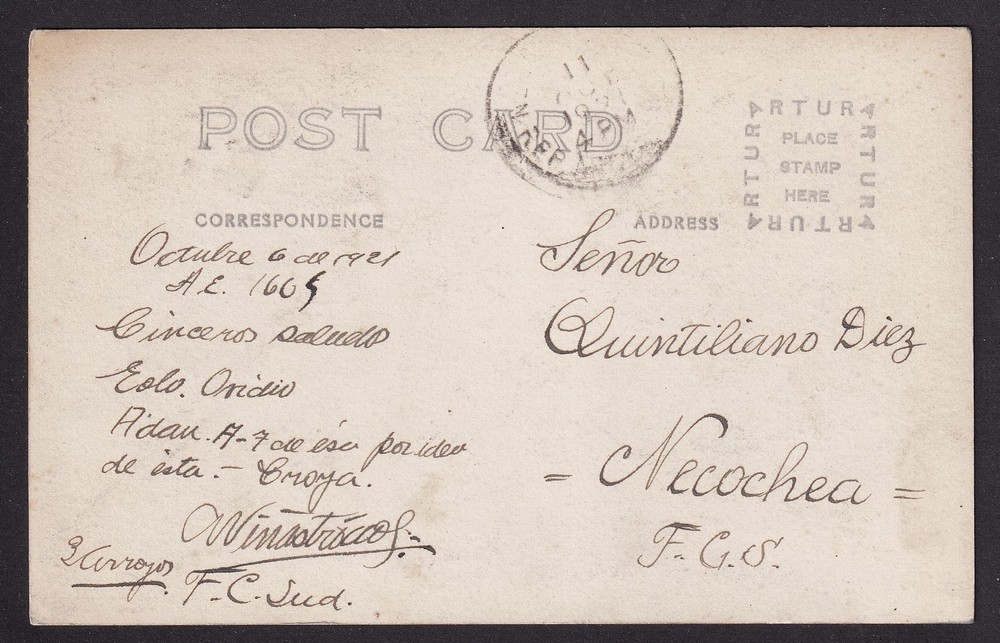 POST CARD
11
19
REP. A
ARTURA
ARTURA
PLACE
STAMP
HERE
ARTURA
ARTURA
CORRESPONDENCE
ADDRESS
Octubre 6 de 1921
A.E. 1605
Cinceros saludos
Eolo. Ovidio
Adan. A-7 de ésa por idea
de ésta.- Croya.
3 Arroyos
F.C. Sud.
Señor
Quintiliano Diez
= Necochea =
F.C.S.